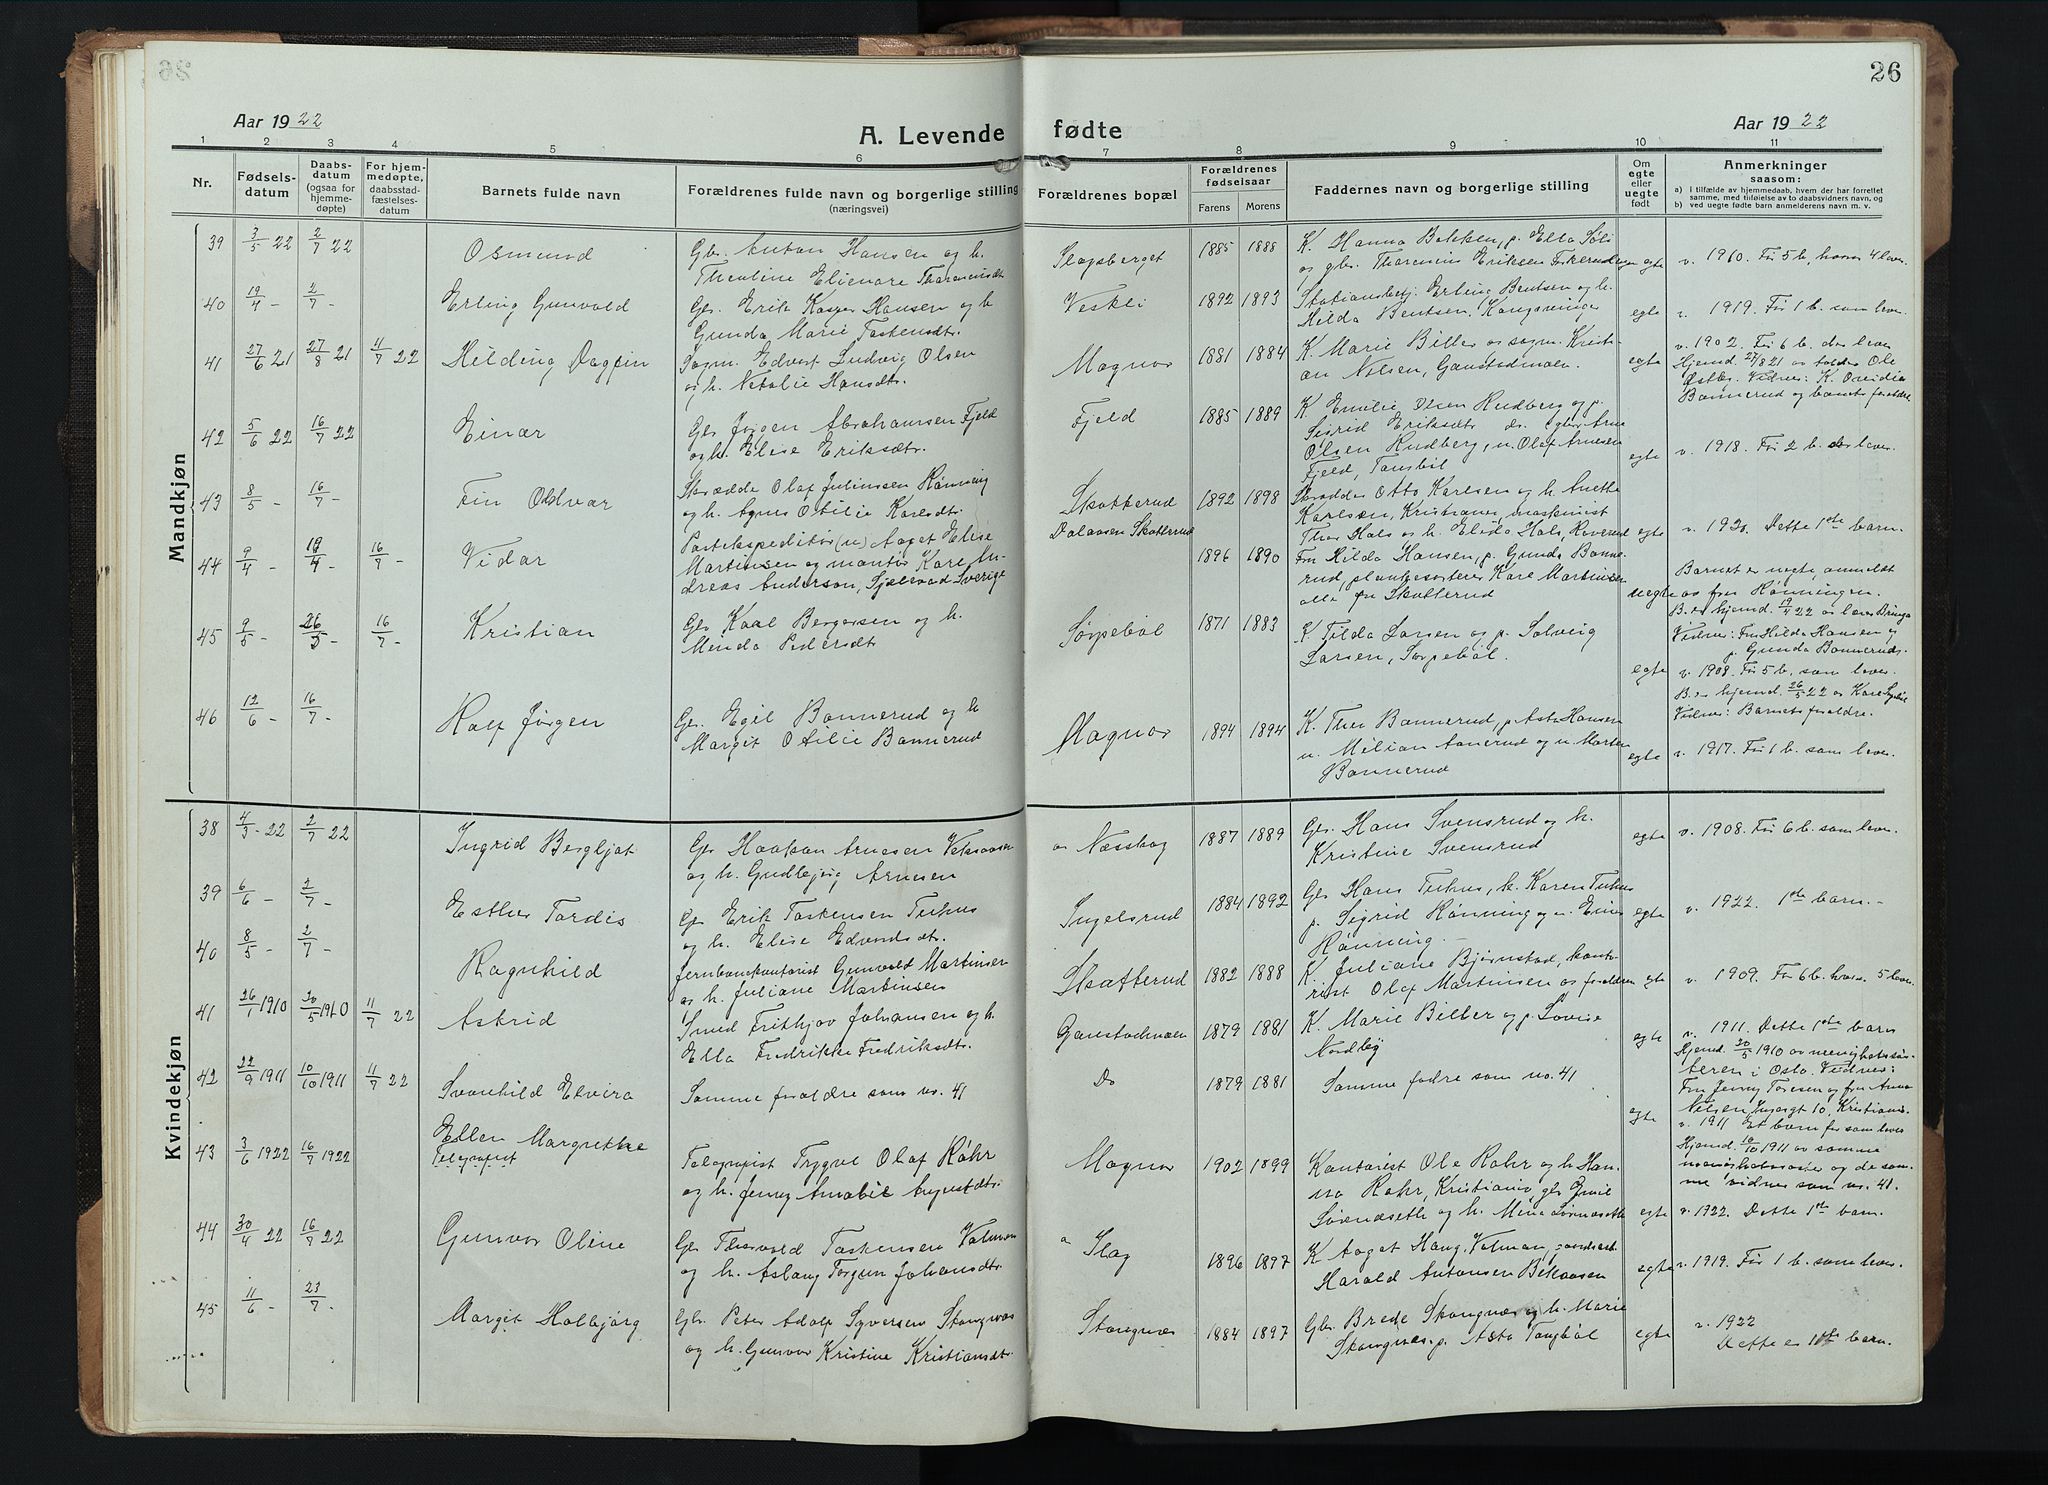 26
Aar 1922
A. Levende fødte
Aar 1922
1 2 3 4 5 6 7 8 9 10 11
Nr.
Fødselsdatum
Daabsdatum (ogsaa for hjemmedøpte)
For hjemmedøpte, daabsstadfæstelsesdatum
Barnets fulde navn
Forældrenes fulde navn og borgerlige stilling (næringsvei)
Forældrenes bopæl
Forældrenes fødselsaar
Farens Morens
Faddernes navn og borgerlige stilling
Om egte eller uegte født
Anmerkninger saasom:
a) I tilfælde av hjemmedaab, hvem der har forrettet samme, med tilføielse av to daabsvidners navn, og
b) ved uegte fødte barn anmelderens navn m. v.
Mandkjøn
39 3/5 22 2/7 22 Osmund
Gbr. Anton Hansen og h.
Theoline Elienore
Slogsberget 1885 1888
K. Hanna Bekken, p. Ella
og gbr. Thorenius Eriksen
egte v. 1910. Før 5 b, hvorav 4 lever.
40 19/4 - 2/7 - Erling Gunvald
Gbr. Erik Kasper Hansen og h
Gunda Marie Taskensdtr.
Veskli 1892 1893
Stationsbetj. Erling Bentsen og h.
Hilda Bentsen, Kongsvinger
egte v. 1919. Før 1 b. som lever.
41 27/6 21 27/8 21 11/7 22 Hilding Dagfin
Sagm. Edvart Ludvig Olsen
og h. Natalie Hansdtr.
Magnor 1881 1884
K. Marie Biller og sagm. Kristian
Nilsen, Ganstadmoen.
egte v. 1902. Før 6 b. der lever
Hjemd. 27/8 21 av tolder Ole
Østby. Vidner: K. Ovidia
Bannerud og barnets forældre
42 5/6 22 16/7 22 Einar
Gbr Jørgen Abrahamsen Fjeld
og h. Elise Eriksdtr.
Fjeld 1885 1889
K. Emilie Olsen Rudberg og p.
Sigrid Eriksdtr ds. gbr. Arne
Olsen Rudberg, u. Olaf Arnesen
Fjeld, Tansbøl
egte v. 1918. Før 2 b. der lever.
43 8/5 - 16/7 - Fin Oddvar
Skrædder Olaf Juliussen Rønning
og h. Agnes Otilie Karlsdtr.
Skotterud 1892 1898
Skrædder Otto Karlsen og h. Anette
Karlsen, Kristiania, maskinist
Thor Hals og h. Elida Hals, Roverud
egte v. 1920. Dette 1ste barn.
44 9/4 - 19/4 - 16/7 - Vidar
Postekspeditør (u) Aagot Elise
Martinsen og montør Karl Andreas
Anderson, Själevad Sverige
Dalaasen Skotterud 1896 1890
Fru Hilda Hansen, p. Gunda Bannerud,
Kare Martinsen
alle fra Skotterud
uegte Barnet er uegte, anmeldt
av fru Rønningen.
B. er hjemd. 19/4 22 av lærer
Vidner: Fru Hilda Hansen og
p. Gunda Bannerud.
45 9/5 - 26/5 - 16/7 - Kristian
Gbr Karl Bergersen og h.
Minda Pedersdtr
Sørpebøl 1871 1883
K. Tilda Larsen og p. Solveig
Larsen, Sørpebøl.
egte v. 1908. Før 5 b, som lever.
B. er hjemd. 26/5 22 av
Vidner: Barnets forældre.
46 12/6 - 16/7 - Rolf Jørgen
Gbr. Egil Bannerud og h
Margit Otilie Bannerud
Magnor 1894 1894
K. Thea Bannerud, p. Asta Hansen
u. Milian Aanerud og u. Morten
Bannerud
egte v. 1917. Før 1 b. som lever.
Kvindekjøn
38 4/3 - 22 2/7 22 Ingrid Bergljot
Gbr Haakon Arnesen
og h. Gudbjørg Arnesen
Næsskog 1887 1889
Gbr. Hans Svensrud og h.
Kristine Svensrud
egte v. 1908. Før 6 b. som lever.
39 6/6 - 2/7 - Esther Tordis
Gbr Erik Taskensen Tuhus
og h. Elise Edvardsdtr.
Ingelsrud 1884 1892
Gbr Hans Tuhus, h. Karen Tuhus
p. Sigrid Rønning og u. Einar
Rønning.
egte v. 1922. 1ste barn.
40 8/5 - 2/7 - Ragnhild
Jernbanekontorist Gunvald Martinsen
og h. Juliane Martinsen
Skotterud 1882 1888
K. Juliane Bjørnstad, kontorist
Olaf Martinsen og forældrene
egte v. 1909. Før 6 b. hvorav 5 lever.
41 26/1 1910 30/5 1910 11/7 22 Astrid
Smed Frithjov Johansen og h.
Ella Fredrikke Fredriksdtr.
Ganstadmoen 1879 1881
K. Marie Biller og p. Lovise
Nordby
egte v. 1911. Dette 1ste barn
Hjemd. 30/5 1910 av menighetssøsteren
i Oslo. Vidner:
Fru Jenny Toresen og fru Anna
Nilsen, 10, Kristiania.
42 22/9 1911 10/10 1911 11/7 22 Svanhild Elvira
Samme forældre som nr. 41
Do 1879 1881
Samme fadre som no. 41
egte v. 1911 Et barn før som lever
Hjemd. 10/10 1911 av samme
menighetssøster og de samme
vidner som nr. 41.
43 3/6 1922 16/7 1922 Ellen Margrethe
Telegrafist
Telegrafist Trygve Olaf Røhr
og h. Jenny Amalie Augustdtr.
Magnor 1902 1899
Kontorist Ole Røhr og h. Hanna
Røhr, Kristiania, gbr. Emil
Sørnæseth og h. Mina Sørnæseth
egte v. 1922. Dette 1ste barn.
44 30/4 22 16/7 22 Gunvor Oline
Gbr Thorvald Taskensen Valmoen
og h. Aslaug Torgun Johansdtr.
Slag 1896 1897
K Aagot Haug Valmoen,
Harald Antonsen Bekaasen
egte v. 1919. Før 1 b. som lever.
45 11/6 - 23/7 - Margit Halbjørg
Gbr. Peter Adolf Syversen Skongnæs
og h. Gunvor Kristine Kristiansdtr.
Skongnæs 1884 1897
Gbr. Brede Skongnæs og h. Marie
Skongnæs, p. Asta Tansbøl
egte v. 1922
Dette er 1ste barn.